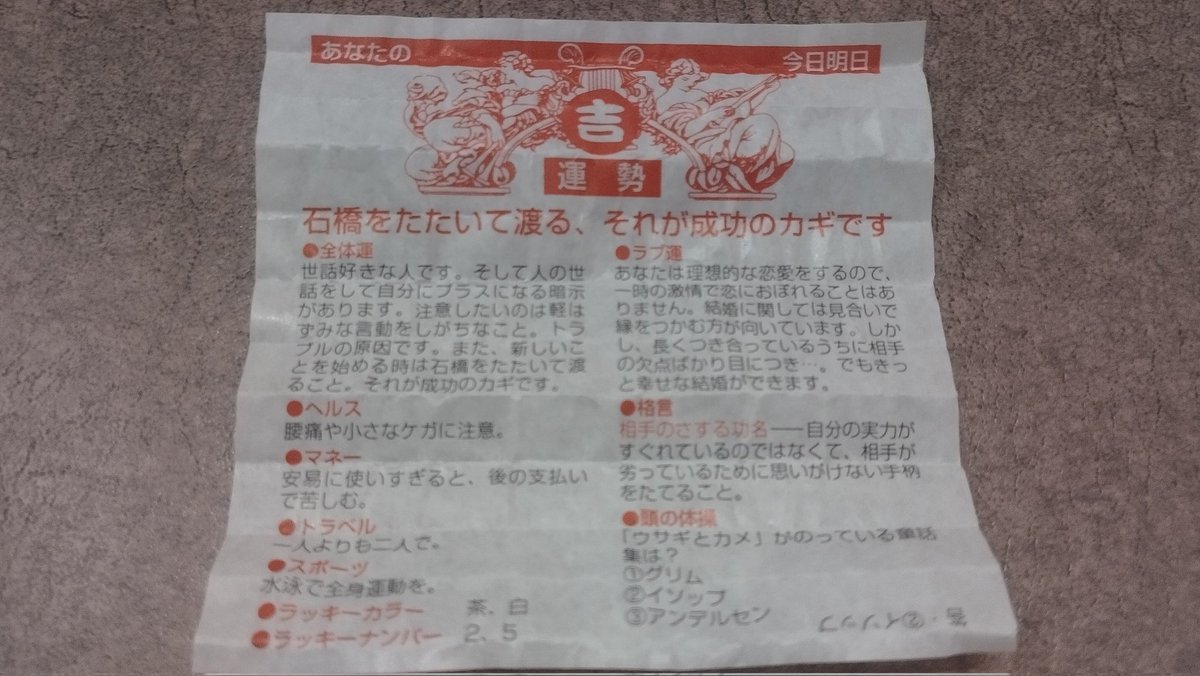 あなたの
今日明日
吉
運勢
石橋をたたいて渡る、それが成功のカギです
●全体運
世話好きな人です。そして人の世
話をして自分にプラスになる暗示
があります。注意したいのは軽は
ずみな言動をしがちなこと。トラ
ブルの原因です。また、新しいこ
とを始める時は石橋をたたいて渡
ること。それが成功のカギです。
●ヘルス
腰痛や小さなケガに注意。
●マネー
安易に使いすぎると、後の支払い
で苦しむ。
●トラベル
一人よりも二人で。
●スポーツ
水泳で全身運動を。
●ラッキーカラー 茶、白
●ラッキーナンバー 2、5
●ラブ運
あなたは理想的な恋愛をするので、
一時の激情で恋におぼれることはあ
りません。結婚に関しては見合いで
縁をつかむ方が向いています。しか
し、長くつき合っているうちに相手
の欠点ばかり目につき…。でもきっ
と幸せな結婚ができます。
●格言
相手のさする功名――自分の実力が
すぐれているのではなくて、相手が
劣っているために思いがけない手柄
をたてること。
●頭の体操
「ウサギとカメ」がのっている童話
集は?
①グリム
②イソップ
③アンデルセン
答・②イソップ